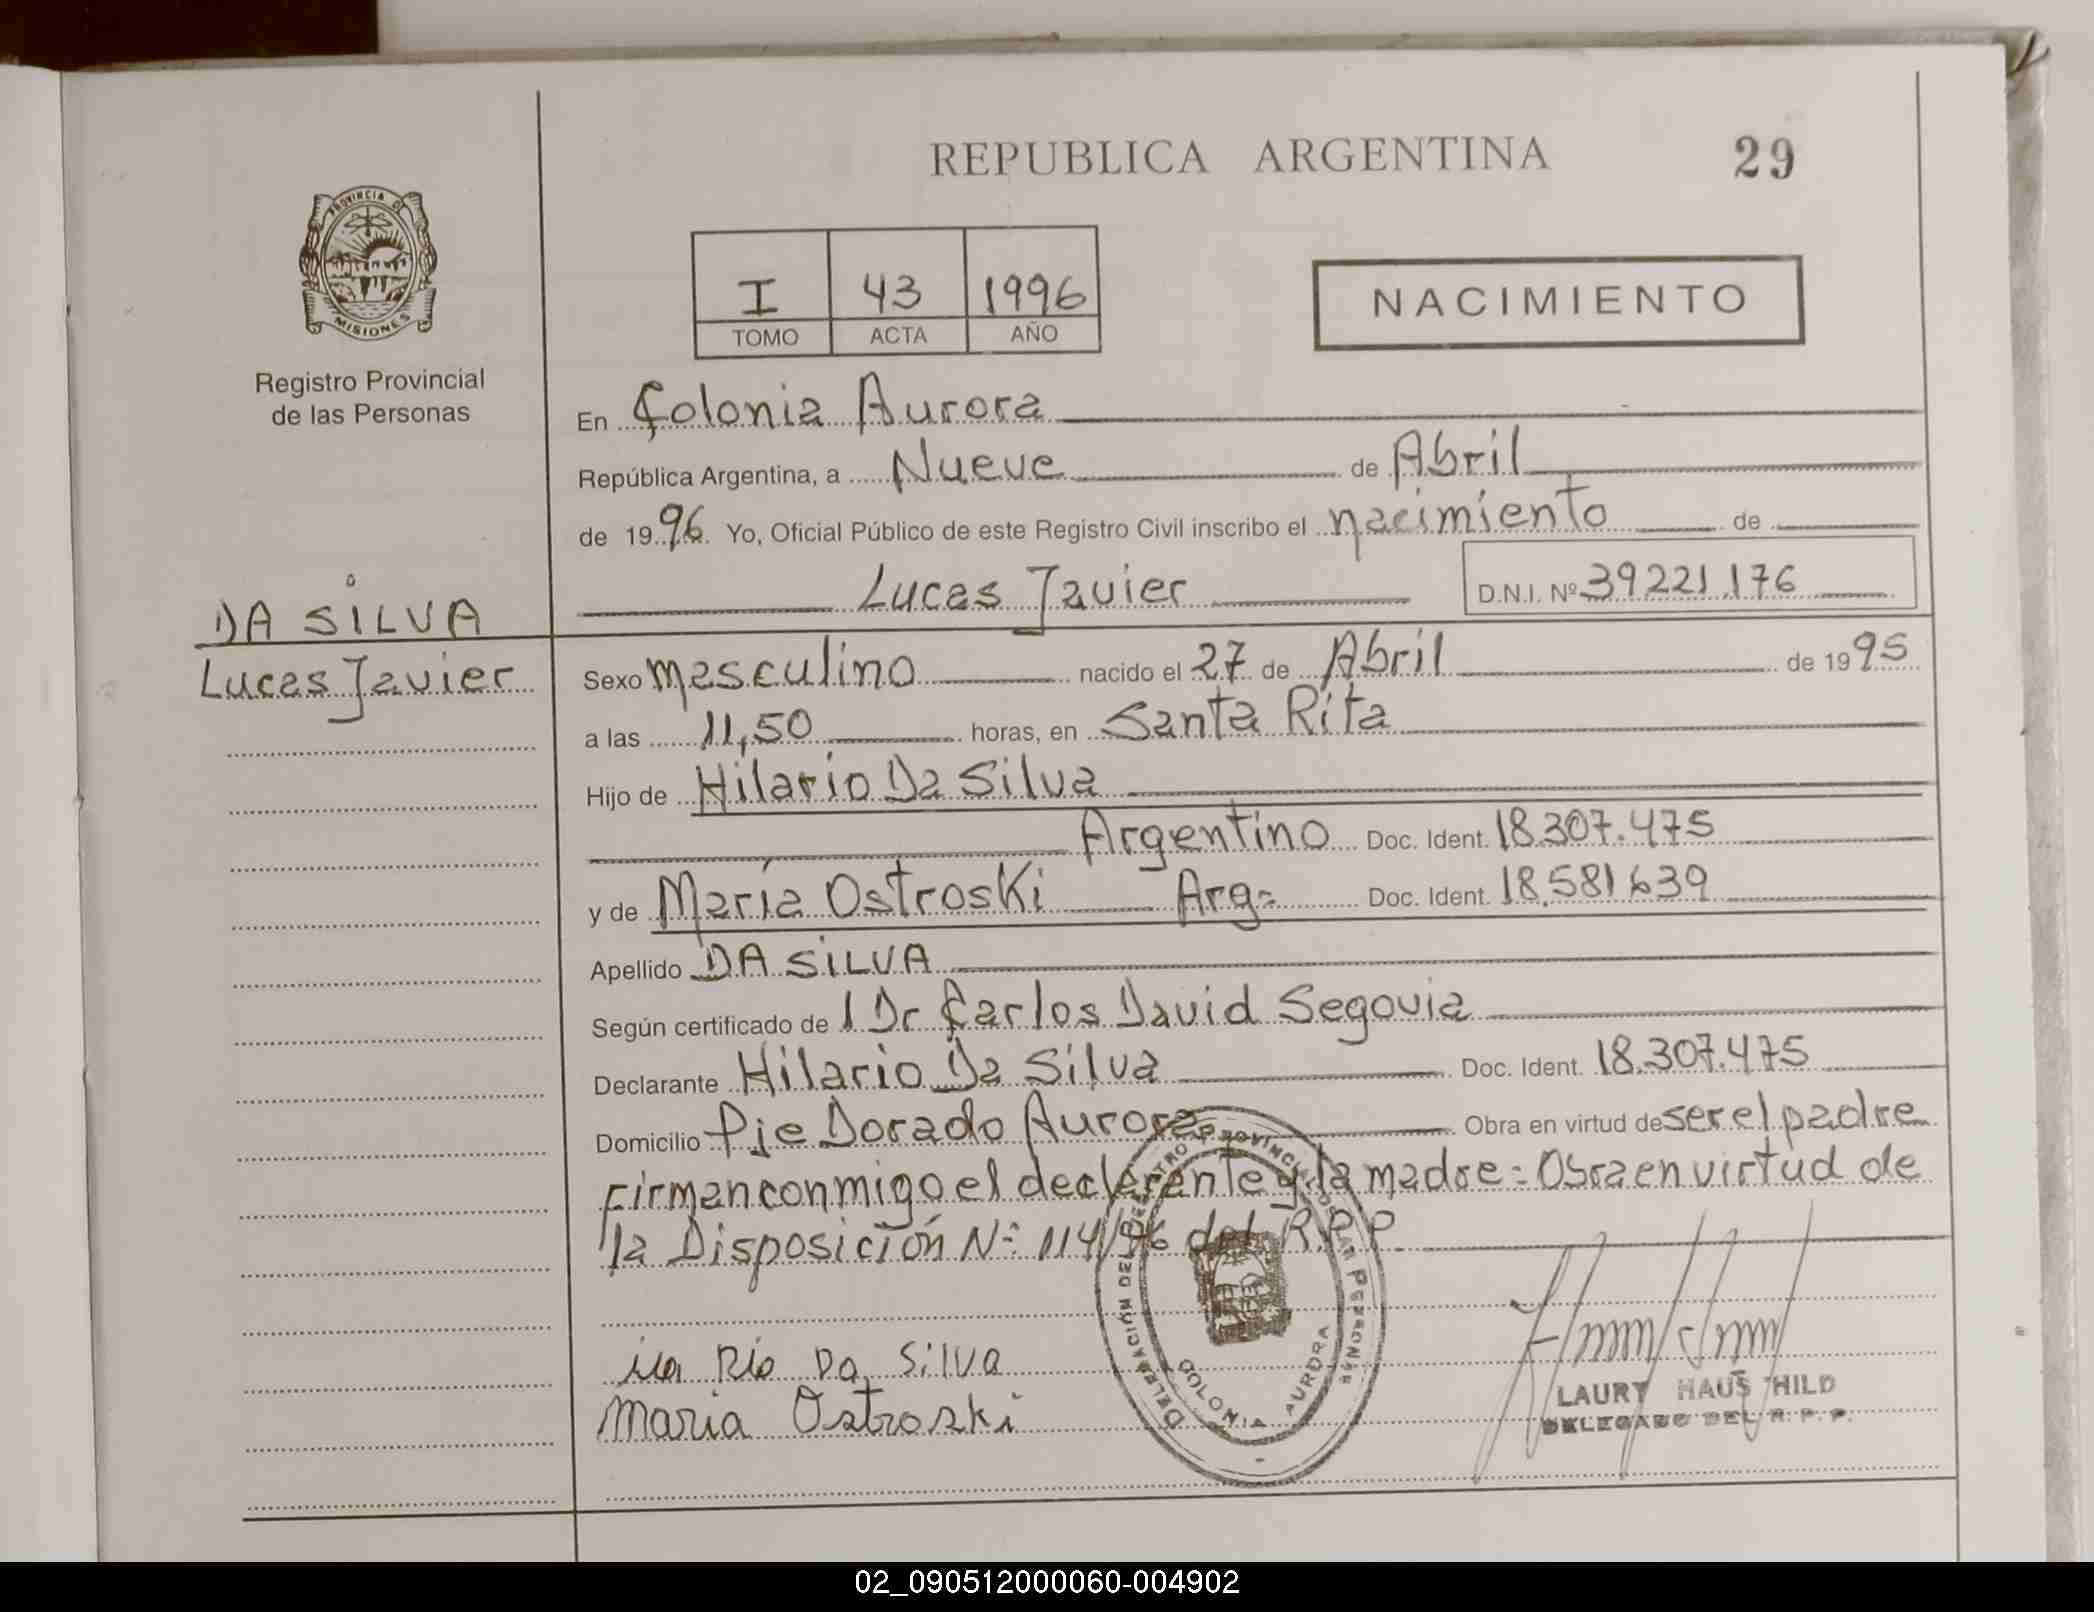 REPUBLICA ARGENTINA
29
PROVINCIA DE
MISIONES
Registro Provincial
de las Personas
I 43 1996
TOMO ACTA AÑO
NACIMIENTO
DA SILVA
Lucas Javier
En Colonia Aurora
República Argentina, a Nueve de Abril
de 1996 Yo, Oficial Público de este Registro Civil inscribo el nacimiento de
Lucas Javier D.N.I. Nº 39221.176
Sexo masculino nacido el 27 de Abril de 1995
a las 11,50 horas, en Santa Rita
Hijo de Hilario Da Silva
Argentino Doc. Ident. 18.307.475
y de María Ostroski Arg= Doc. Ident. 18.581639
Apellido DA SILVA
Según certificado de l Dr Carlos David Segovia
Declarante Hilario Da Silva Doc. Ident. 18.307.475
Domicilio Pje Dorado Aurora Obra en virtud de ser el padre
Firman conmigo el declarente y la madre = Obra en virtud de
la Disposición Nº 114/96 del R.P.P
DELEGACIÓN DEL REGISTRO PROVINCIAL DE LAS PERSONAS
COLONIA AURORA
Da Silva
Maria Ostroski
LAURY HAUS HILD
DELEGADO DEL R. P. P.
02_090512000060-004902